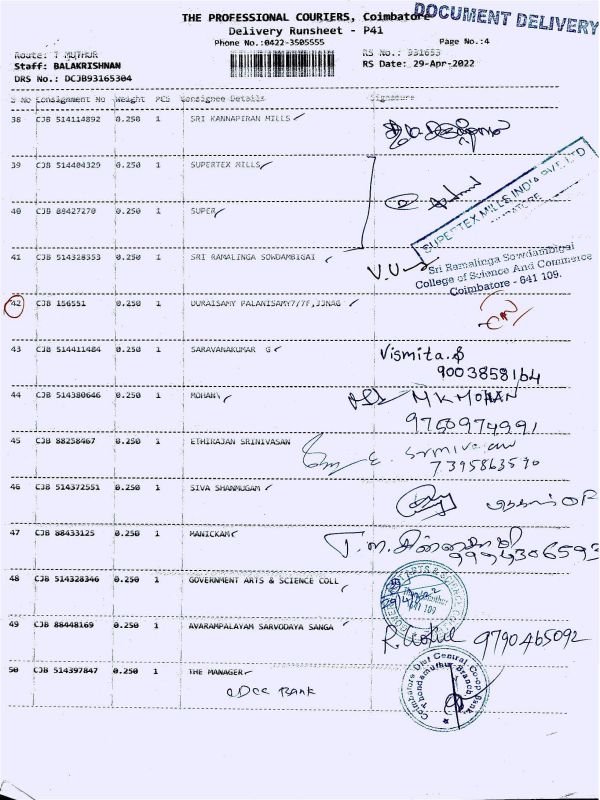 DOCUMENT DELIVERY
THE PROFESSIONAL COURIERS, Coimbatore
Delivery Runsheet - P41
Phone No.:0422-3505555
Page No.:4
Route: T MUTHUR
RS No.: 931653
Staff: BALAKRISHNAN
RS Date: 29-Apr-2022
DRS No.: DCJB93165304
S No Consignment No Weight PCS Consignee Details Signature
38 CJB 514114892 0.250 1 SRI KANNAPIRAN MILLS
39 CJB 514404329 0.250 1 SUPERTEX MILLS
SUPERTEX MILLS INDIA PVT. LTD
40 CJB 88427270 0.250 1 SUPER
41 CJB 514328353 0.250 1 SRI RAMALINGA SOWDAMBIGAI
Sri Ramalinga Sowdambigai
College of Science And Commerce
Coimbatore - 641 109.
42 CJB 156551 0.250 1 DURAISAMY PALANISAMY7/7F,JJNAG
43 CJB 514411484 0.250 1 SARAVANAKUMAR G
Vismita.S
9003858164
44 CJB 514380646 0.250 1 MOHAN
M K MOHAN
9750974991
45 CJB 88258467 0.250 1 ETHIRAJAN SRINIVASAN
E. Srinivasan
7395863590
46 CJB 514372551 0.250 1 SIVA SHANMUGAM
47 CJB 88433125 0.250 1 MANICKAM
9994306593
48 CJB 514328346 0.250 1 GOVERNMENT ARTS & SCIENCE COLL
49 CJB 88448169 0.250 1 AVARAMPALAYAM SARVODAYA SANGA
R. Gokul 9790465092
50 CJB 514397847 0.250 1 THE MANAGER
CDCC BANK
Coimbatore Dist Central Co-op Bank
Thondamuthur Branch